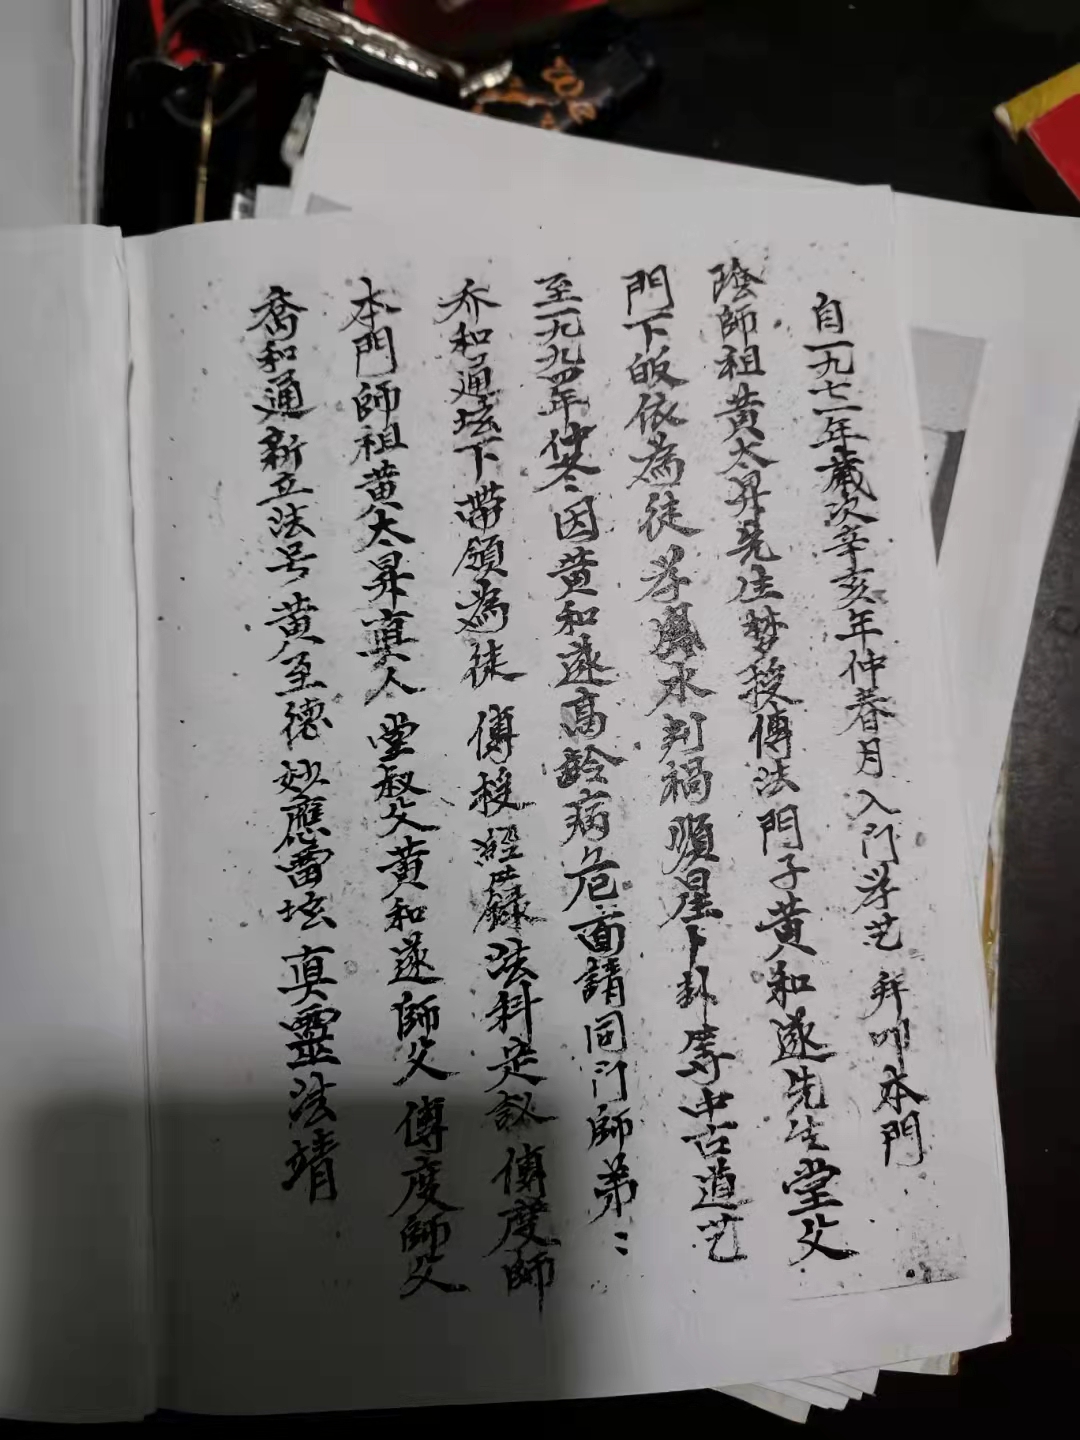 自一九七一年歲次辛亥年仲春月入门孝艺 拜叩本門
陰師祖黄太昇先生梦授傳法門子黄和遂先生堂父
門下皈依為徒孝風水判禍順星卜卦等中古道艺
至一九九四年仲冬因黄和遂高龄病危面請同门師弟：
乔和通坛下带領為徒 傳授經籙法科定訣傳度師
本門師祖黄太昇真人堂叔父黄和遂師父傳度師父
喬和通新立法号黄至德妙應雷坛真靈法靖